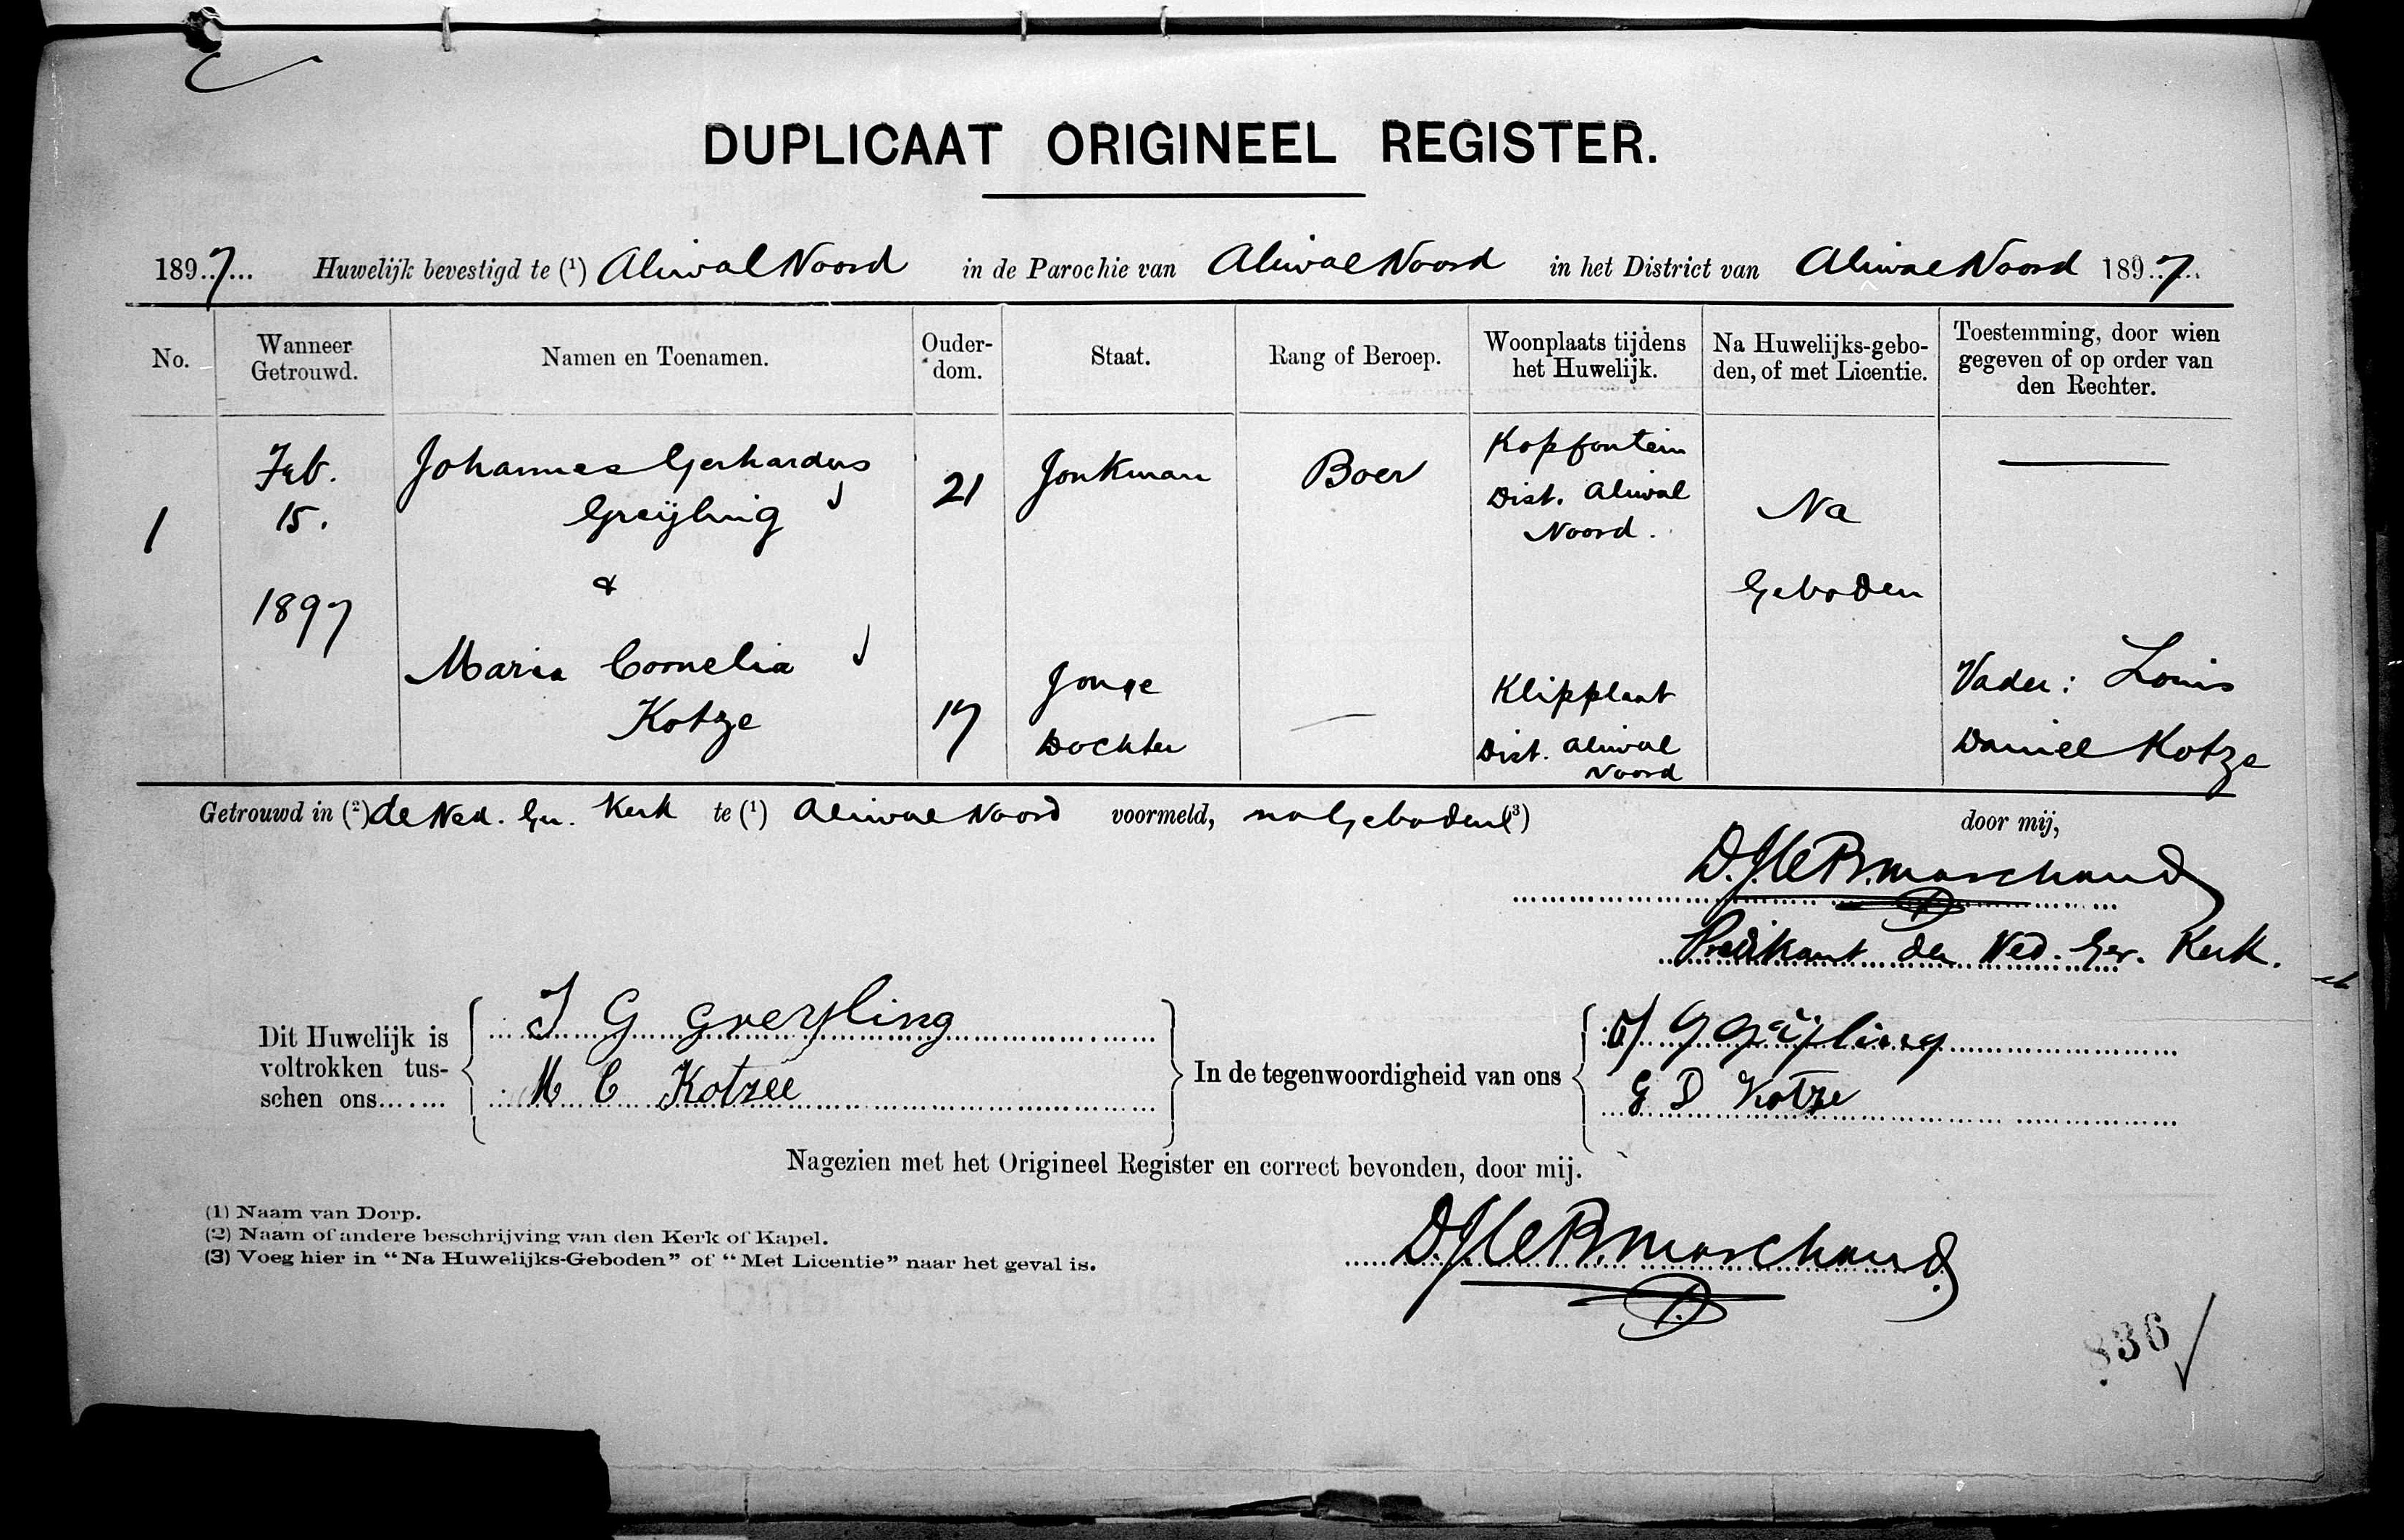 DUPLICAAT ORIGINEEL REGISTER.
1897 Huwelijk bevestigd te (1) Aliwal Noord in de Parochie van Aliwal Noord in het District van Aliwal Noord 1897
No.
Wanneer
Getrouwd.
Namen en Toenamen.
Ouder-
dom.
Staat.
Rang of Beroep.
Woonplaats tijdens
het Huwelijk.
Na Huwelijks-gebo-
den, of met Licentie.
Toestemming, door wien
gegeven of op order van
den Rechter.
1
Feb.
15.
1897
Johannes Gerhardus
Greijling
&
Maria Cornelia
Kotze
21
17
Jonkman
Jonge
Dochter
Boer
—
Kopfontein
Dist. Aliwal
Noord.
Klipplaat
Dist. Aliwal
Noord
Na
Geboden
—
Vader: Louis
Daniel Kotze
Getrouwd in (2) de Ned. Ger. Kerk te (1) Aliwal Noord voormeld, na Geboden (3) door mij,
D. J. le R. Marchand
Predikant der Ned. Ger. Kerk.
Dit Huwelijk is
voltrokken tus-
schen ons.......
J G Greyling
M C Kotzee
In de tegenwoordigheid van ons
J G Greijling
G D Kotze
Nagezien met het Origineel Register en correct bevonden, door mij.
D. J. le R. Marchand
(1) Naam van Dorp.
(2) Naam of andere beschrijving van den Kerk of Kapel.
(3) Voeg hier in “Na Huwelijks-Geboden” of “Met Licentie” naar het geval is.
836